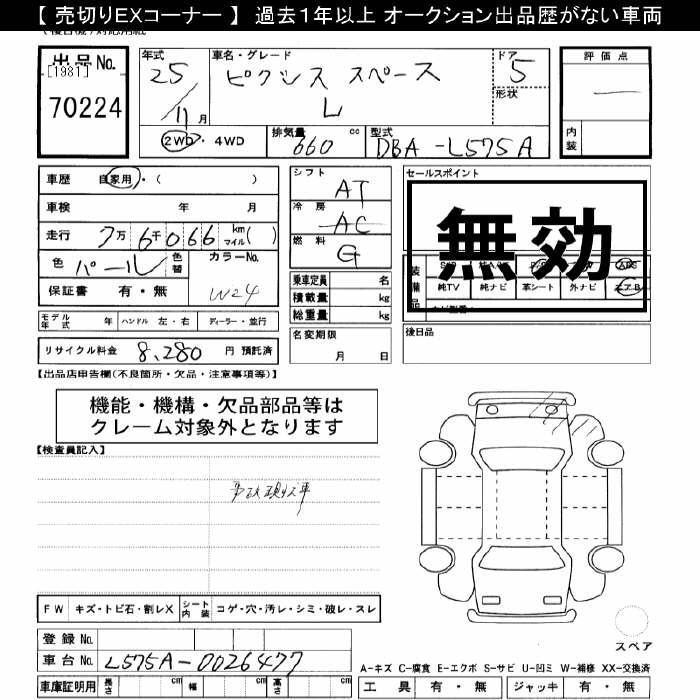 【 売切りEXコーナー 】 過去１年以上 オークション出品歴がない車両
出品No. [1981] 70224
年式 25/11月
車名・グレード ピクシス スペース L
ドア 5
形状
2WD・4WD
排気量 660 cc
型式 DBA-L575A
評価点 —
内装
車歴 自家用・( )
車検 年 月
走行 7万6千066 km マイル( )
色 パール 色替 カラーNo. W24
保証書 有・無
モデル年式 年 ハンドル 左・右 ディーラー・並行
リサイクル料金 8,280 円 預託済
シフト AT
冷房 AC
燃料 G
乗車定員 名
積載量 kg
総重量 kg
名変期限 月 日
セールスポイント
無効
装備品
ABS
純TV 純ナビ 革シート 外ナビ エアB
後日品
【出品店申告欄(不良箇所・欠品・注意事項等)】
機能・機構・欠品部品等は
クレーム対象外となります
【検査員記入】
事故現状車
FW キズ・トビ石・割レX シート内装 コゲ・穴・汚レ・シミ・破レ・スレ
登録No.
車台No. L575A-0026477
車庫証明用 長さ cm 幅 cm 高さ cm
スペア
A-キズ C-腐食 E-エクボ S-サビ U-凹ミ W-補修 XX-交換済
工具 有・無 ジャッキ 有・無